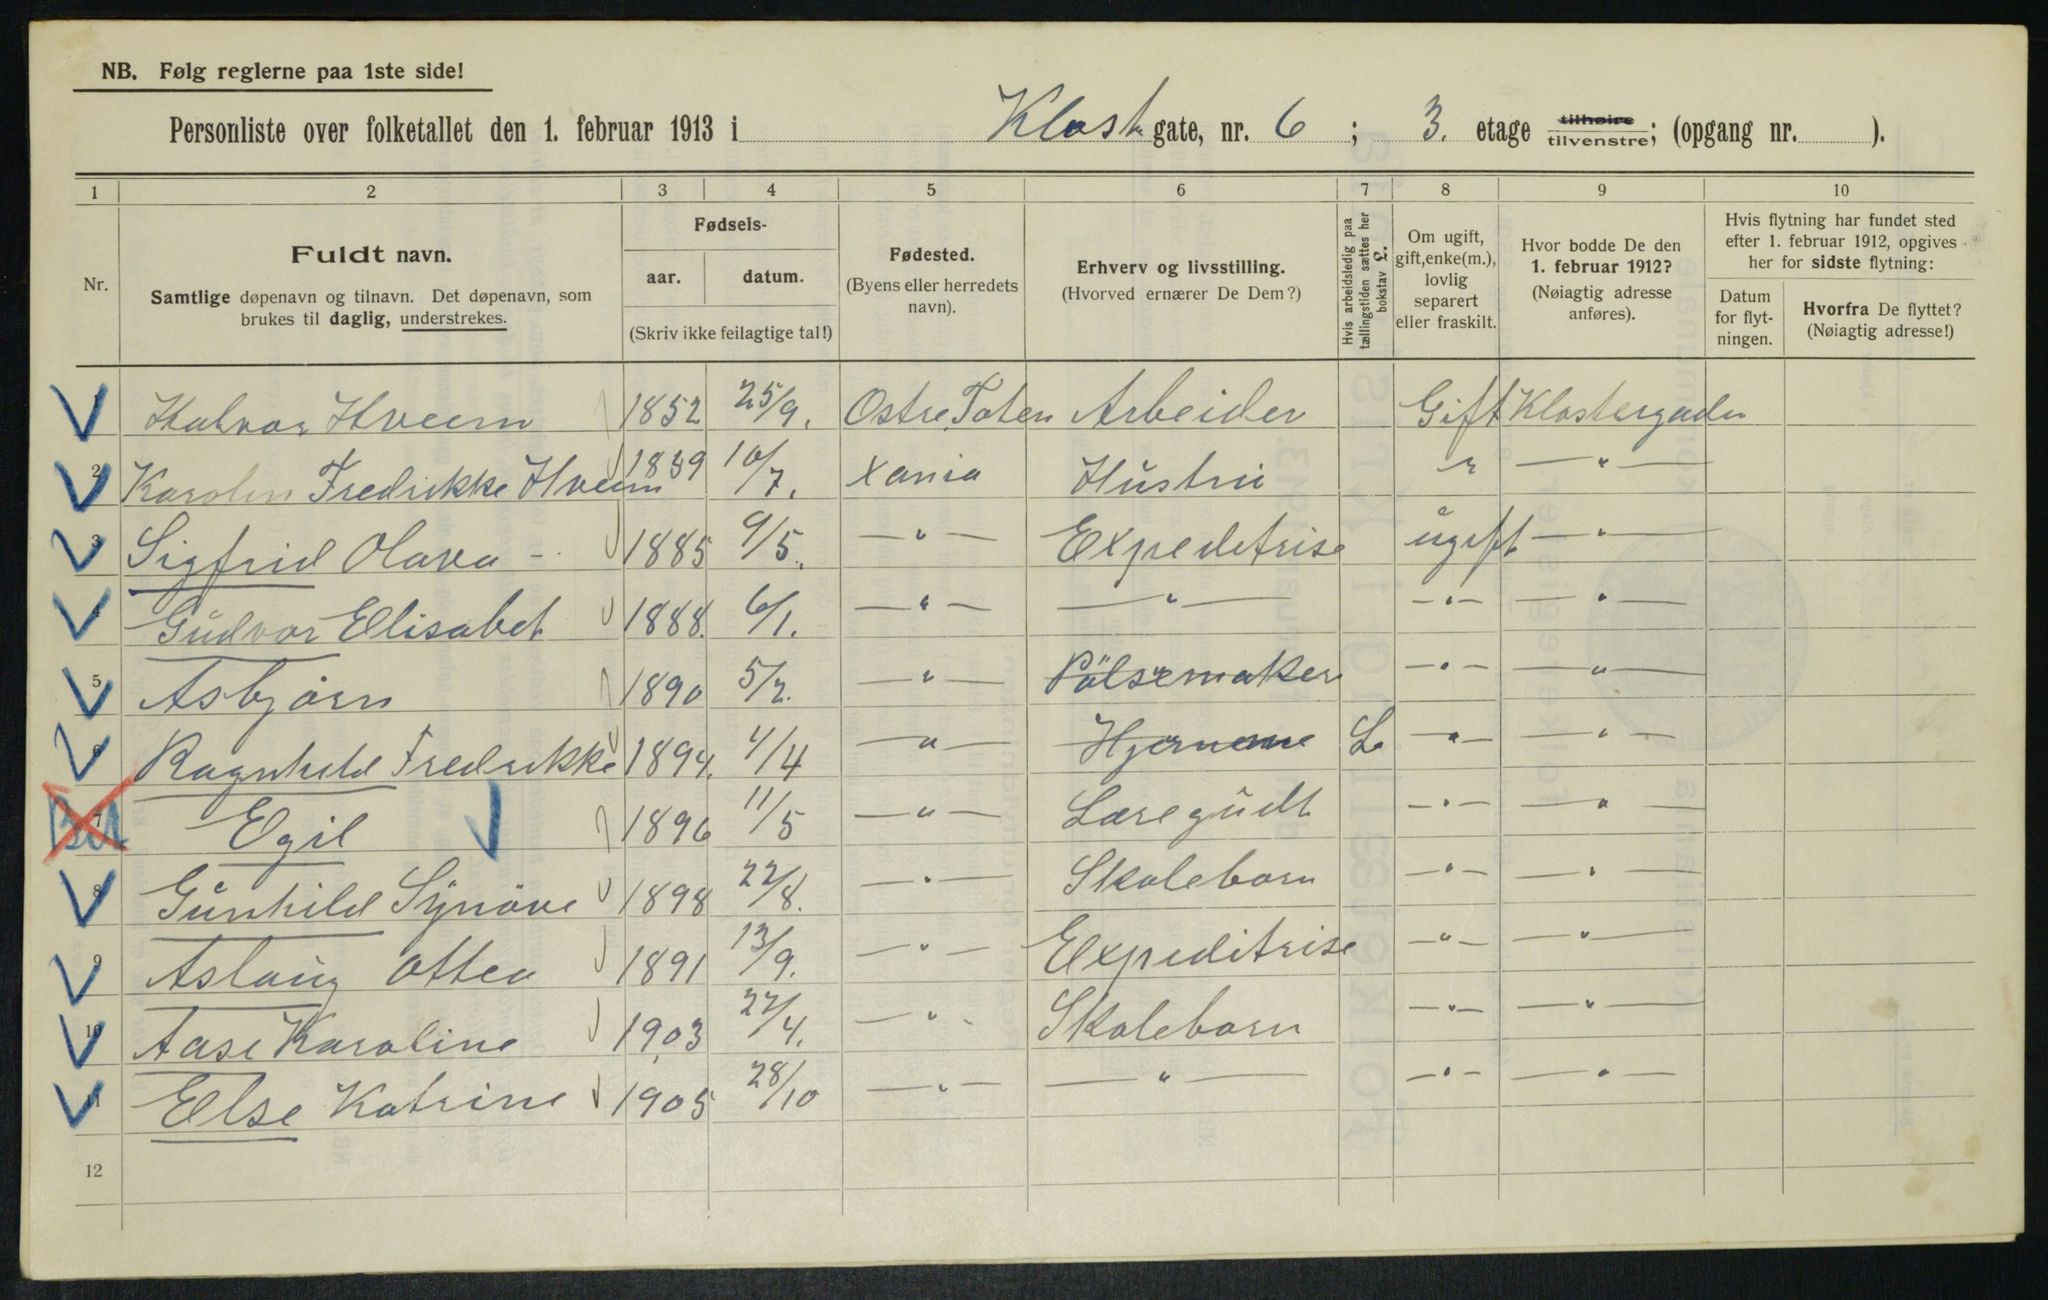 NB. Følg reglerne paa 1ste side!
Personliste over folketallet den 1. februar 1913 i Klost. gate, nr. 6 ; 3. etage tilhøire tilvenstre; (opgang nr. ).
1 2 3 4 5 6 7 8 9 10
Nr.
Fuldt navn.
Samtlige døpenavn og tilnavn. Det døpenavn, som
brukes til daglig, understrekes.
Fødsels-
aar. datum.
(Skriv ikke feilagtige tal!)
Fødested.
(Byens eller herredets
navn).
Erhverv og livsstilling.
(Hvorved ernærer De Dem?)
Hvis arbeidsledig paa
tællingstiden sættes her
bokstav L.
Om ugift,
gift, enke(m.),
lovlig
separert
eller fraskilt.
Hvor bodde De den
1. februar 1912?
(Nøiagtig adresse
anføres).
Hvis flytning har fundet sted
efter 1. februar 1912, opgives
her for sidste flytning:
Datum
for flyt-
ningen.
Hvorfra De flyttet?
(Nøiagtig adresse!)
1 Halvor Hveem 1852 25/9. Ostre Toten Arbeider Gift Klostergaden
2 Karolin Fredrikke Hveem 10/7. Xania Hustru " — " —
3 Sigfrid Olava - 1885 9/5. — " — Expeditrise ugift — " —
4 Gudvor Elisabet 1888. 6/1. — " — — " — — " — — " —
5 Asbjørn 1890 5/2. — " — Pölsemaker — " — — " —
6 Ragnhild Fredrikke 1894. 4/4 — " — Hjemme L. — " — — " —
7 Egil 1896 11/5 — " — Læregudt — " — — " —
8 Gunhild Synöve 1898 22/8. — " — Skolebarn — " — — " —
9 Aslaug Ottea 1891 13/9. — " — Expeditrise — " — — " —
10 Aase Karoline 1903 27/4. — " - Skolebarn — " — — " —
11 Else Katrine 1905 28/10 — " — — " — — " — — " —
12